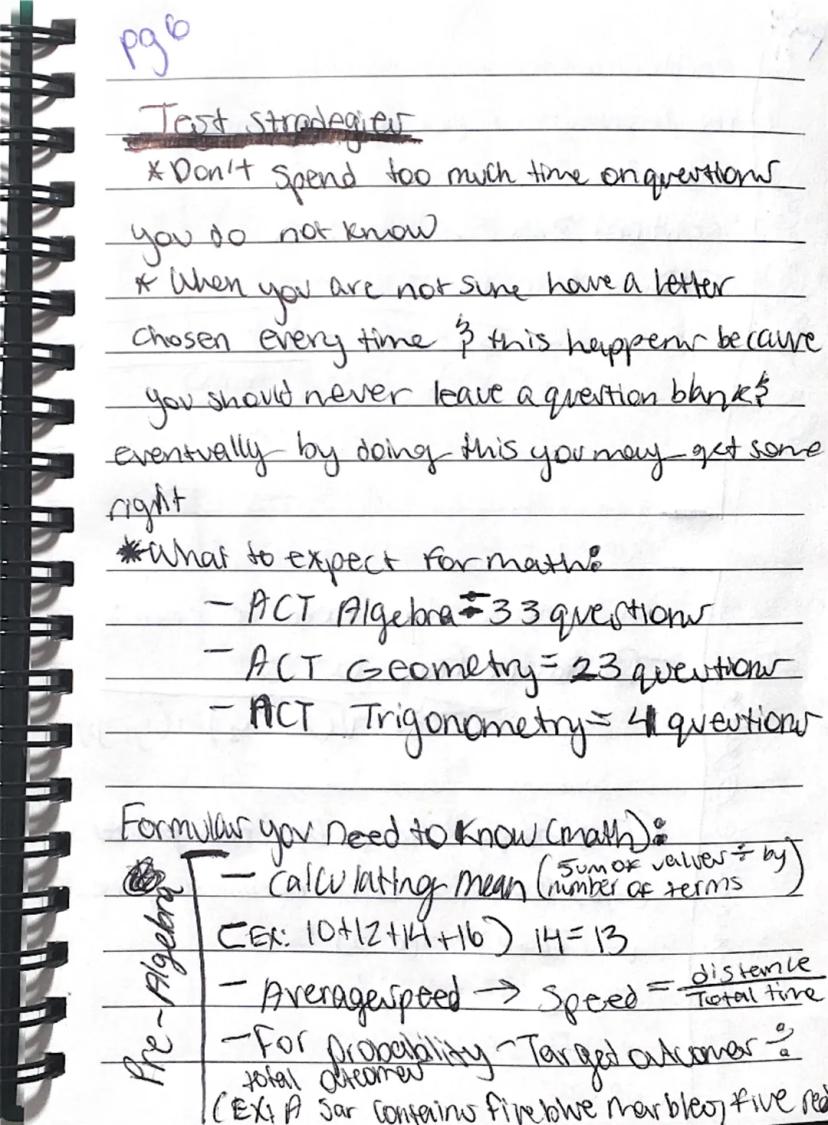 pg 6
Test stradegies
* Don't spend too much time on questions
you do not know
* When you are not sure have a letter
chosen every time & this happens because
you should never leave a question blank &
eventually by doing this you may get some
right
* What to expect for math:
- ACT Algebra = 33 questions
- ACT Geometry = 23 questions
- ACT Trigonometry = 4 questions
Formulas you need to know (math):
Pre-Algebra
- Calculating mean (sum of values ÷ by
number of terms)
(EX: 10+12+14+16) 14=13
- Average speed → Speed = distance
Total time
- For probability - Target outcomes ÷
total outcomes
(EX: A Jar contains five blue marbles, five red